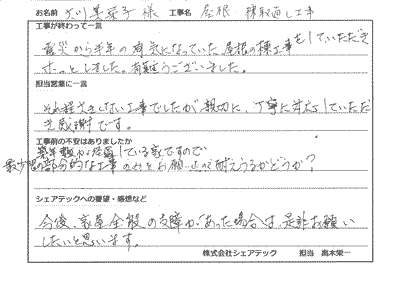 お名前 立川美栄子 様 工事名 屋根 棟取直し工事
工事が終わって一言
震災から半年の間気になっていた屋根の棟工事をしていただき
ホッとしました。有難うございました。
担当営業に一言
それ程大きくない工事でしたが親切に、丁寧に対応していただ
き感謝です。
工事前の不安はありましたか
築年数が経過している家ですので
最少の部分的な工事のみをお願いが耐えうるかどうか？
シェアテックへの要望・感想など
今後、家屋全般の支障があった場合は、是非お願い
したいと思います。
株式会社シェアテック 担当 高木栄一